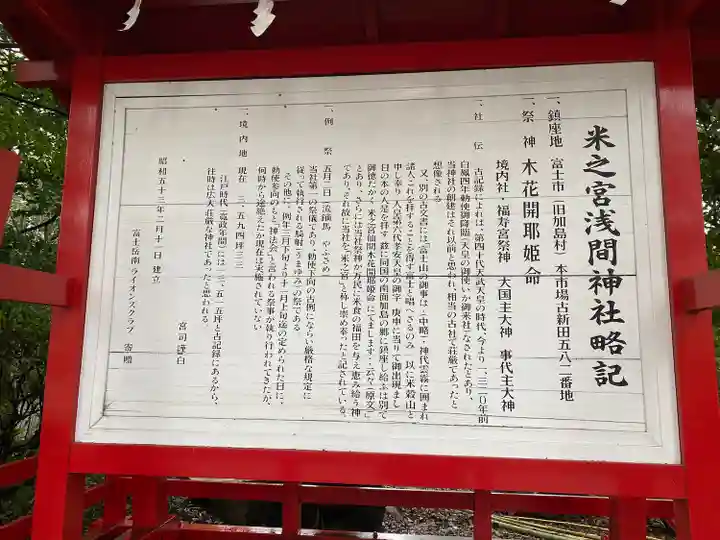 米之宮浅間神社略記
一、鎮座地 富士市(旧加島村)本市場古新田五八二番地
一、祭神 木花開耶姫命
境内社・福寿宮祭神 大国主大神 事代主大神
一、社伝 古記録によれば、第四十代天武天皇の時代、今より一、三一〇年前
白鳳四年勅使御降臨(天皇の御使いが御来社)なされたとあり、
当神社の創建はそれ以前と思われ、相当の古社で荘厳であったと
想像される
又、別の古文書には「富士山の御事は…中略…神代雲霧に囲まれ
諸人これを拝することを得ず富士と唱へさるのみ 以に米穀山と
申し奉り 人皇第六代孝安天皇の御字 庚申に当りて御出現まし
日の本の人足を拝す 茲に同国の南面加島の郷に鎮座し給ふは別て
御徳たかく、米之宮仙間木花開耶姫命にてまします…云々」原文
とあり、さらには当社祭神が万民に米食の福田を与え恵み給う神
であり、それ故に当社を、米之宮と称し崇め奉ったと記されている。
一、例祭 五月二日(流鏑馬 やぶさめ)
当社第一の祭儀であり、勅使下向の古例にならい厳格な規定に
従って執行される騎射(うまゆみ)の祭である
その他に、例年三月下旬より十一月上旬迄の定められた日に、
勅使参向のもと、「神法会」と言われる祭事が執り行われてきたが、
何時から途絶えたか現在は実施されていない
一、境内地 現在 三、五九四坪三三
江戸時代(寛政年間)には一三、五一五坪と古記録にあるから、
往時は広大荘厳な神社であったと思われる
宮司 謹白
昭和五十三年二月十一日 建立
富士岳南ライオンスクラブ 寄贈